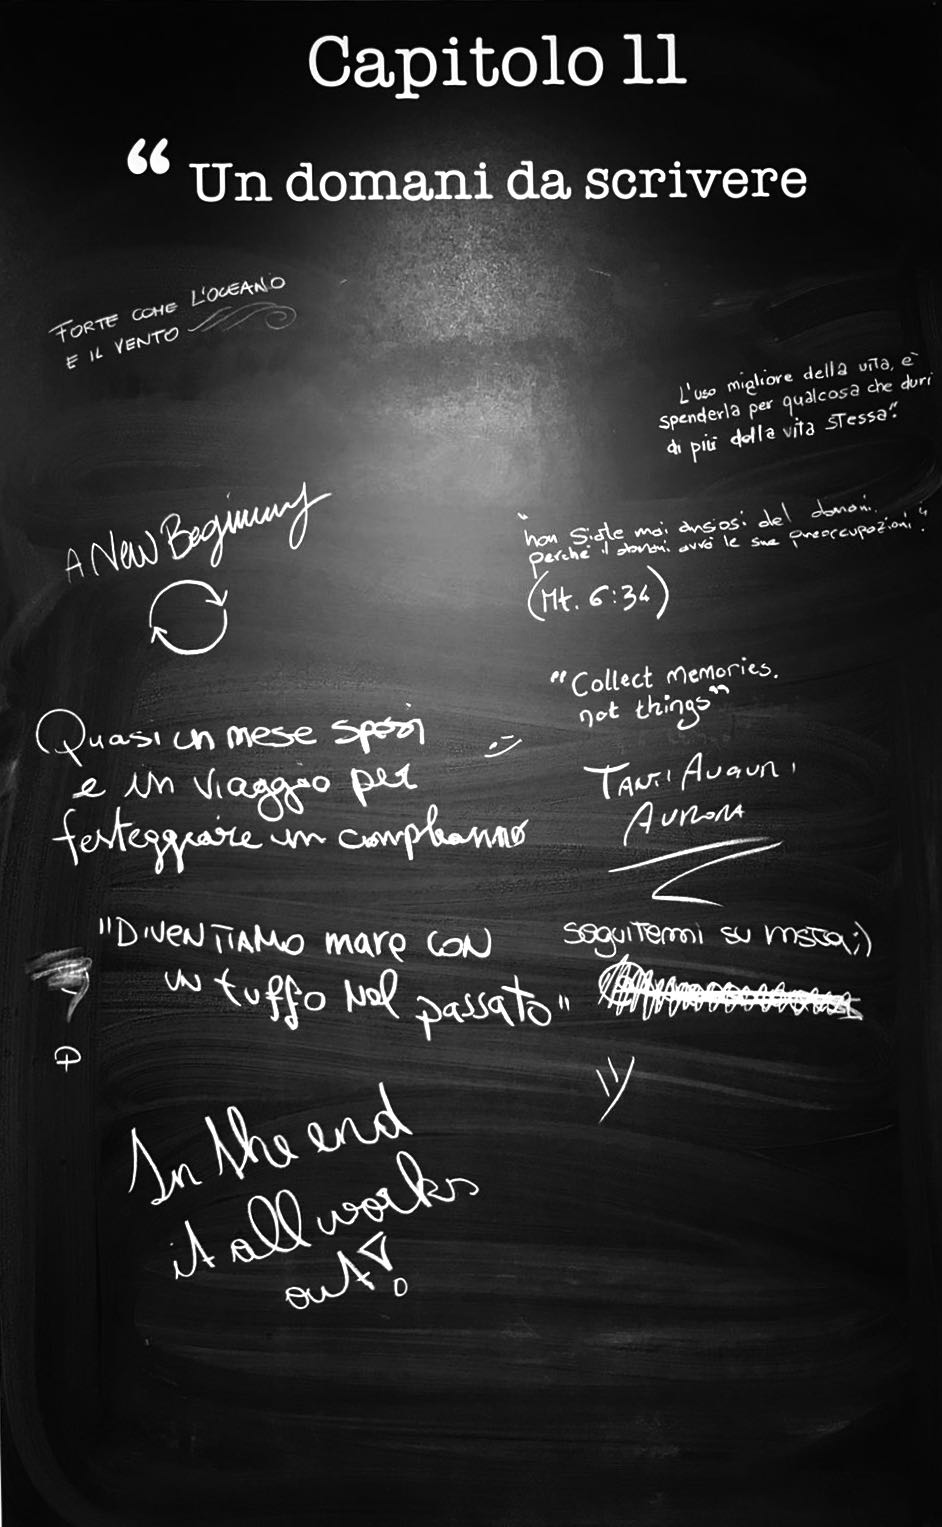 Capitolo 11
“ Un domani da scrivere
FORTE COME L'OCEANO
E IL VENTO
L'uso migliore della vita, è
spenderla per qualcosa che duri
di più della vita stessa".
A New Beginning
"non siate mai ansiosi del domani.
perché il domani avrà le sue preoccupazioni".
(Mt. 6:34)
"Collect memories.
not things"
Quasi un mese sposi
e un viaggio per
festeggiare un compleanno
:)
TANTI AUGURI
AURORA
"DIVENTIAMO mare CON
un tuffo Nel passato"
seguitemi su insta;)
In the end
it all works
out!